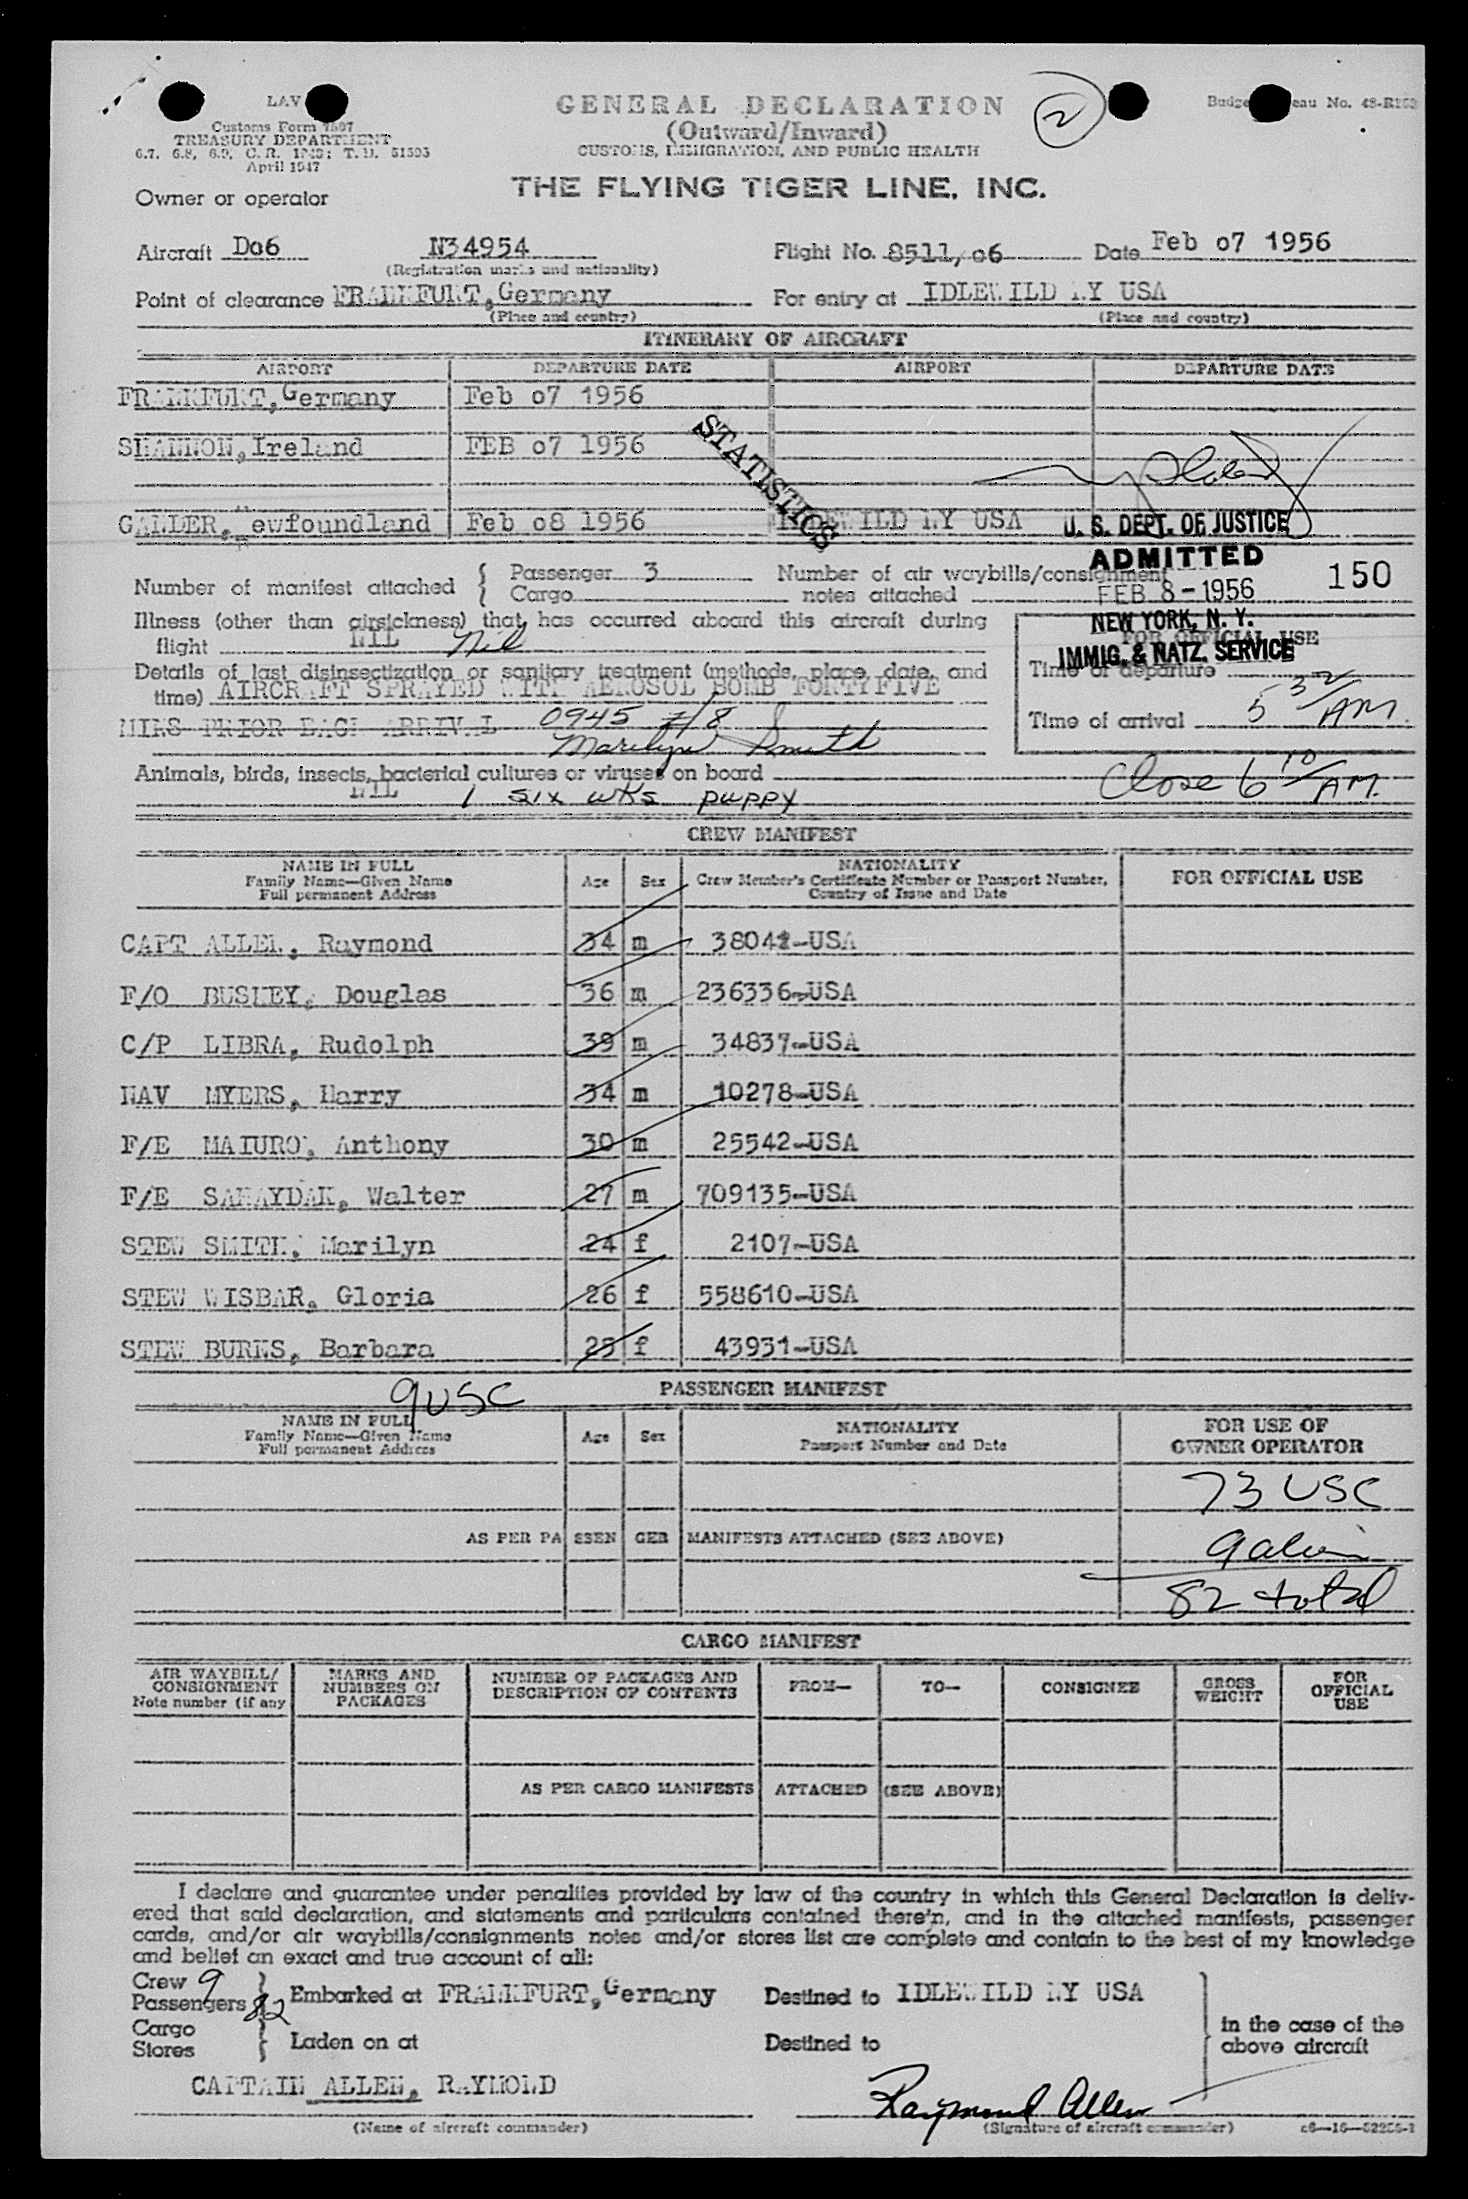 LAV
Customs Form 7507
TREASURY DEPARTMENT
6.7, 6.8, 6.9, C. R. 1943; T. D. 51503
April 1947
GENERAL DECLARATION
(Outward/Inward)
CUSTOMS, IMMIGRATION, AND PUBLIC HEALTH
2
THE FLYING TIGER LINE, INC.
Owner or operator
Aircraft Dc6 N34954 Flight No. 8511/06 Date Feb 07 1956
(Registration marks and nationality)
Point of clearance FRANKFURT,Germany For entry at IDLEWILD NY USA
(Place and country) (Place and country)
ITINERARY OF AIRCRAFT
AIRPORT DEPARTURE DATE AIRPORT DEPARTURE DATE
FRANKFURT,Germany Feb 07 1956
SHANNON,Ireland FEB 07 1956
STATISTICS
GANDER, Newfoundland Feb 08 1956 IDLEWILD NY USA
U. S. DEPT. OF JUSTICE
ADMITTED
FEB 8-1956
NEW YORK, N. Y.
IMMIG. & NATZ. SERVICE
150
Number of manifest attached { Passenger 3 Number of air waybills/consignment
Cargo notes attached
Illness (other than airsickness) that has occurred aboard this aircraft during
flight NIL Nil
FOR OFFICIAL USE
Details of last disinsectization or sanitary treatment (methods, place, date, and
time) AIRCRAFT SPRAYED WITH AEROSOL BOMB FORTYFIVE
Time of departure
MINS PRIOR EACH ARRIVAL 0945 z/8
Marilyn Smith
Time of arrival 5 32 AM.
Animals, birds, insects, bacterial cultures or viruses on board
NIL 1 six wks puppy
Close 6 10 AM.
CREW MANIFEST
NAME IN FULL
Family Name—Given Name
Full permanent Address
Age Sex
NATIONALITY
Crew Member's Certificate Number or Passport Number,
Country of Issue and Date
FOR OFFICIAL USE
CAPT ALLEN, Raymond 34 m 38041-USA
F/O BUSLEY, Douglas 36 m 236336-USA
C/P LIBRA, Rudolph 39 m 34837-USA
NAV MYERS, Harry 34 m 10278-USA
F/E MAIURO, Anthony 30 m 25542-USA
F/E SAHAYDAK, Walter 27 m 709135-USA
STEW SMITH, Marilyn 24 f 2107-USA
STEW WISBAR, Gloria 26 f 558610-USA
STEW BURNS, Barbara 25 f 43931-USA
9 USC
PASSENGER MANIFEST
NAME IN FULL
Family Name—Given Name
Full permanent Address
Age Sex
NATIONALITY
Passport Number and Date
FOR USE OF
OWNER OPERATOR
73 USC
AS PER PASSENGER MANIFESTS ATTACHED (SEE ABOVE)
9 alien
82 total
CARGO MANIFEST
AIR WAYBILL/
CONSIGNMENT
Note number (if any
MARKS AND
NUMBERS ON
PACKAGES
NUMBER OF PACKAGES AND
DESCRIPTION OF CONTENTS
FROM—
TO—
CONSIGNEE
GROSS
WEIGHT
FOR
OFFICIAL
USE
AS PER CARGO MANIFESTS ATTACHED (SEE ABOVE)
I declare and guarantee under penalties provided by law of the country in which this General Declaration is deliv-
ered that said declaration, and statements and particulars contained there'n, and in the attached manifests, passenger
cards, and/or air waybills/consignments notes and/or stores list are complete and contain to the best of my knowledge
and belief an exact and true account of all:
Crew 9
Passengers 82 } Embarked at FRANKFURT,Germany Destined to IDLEWILD NY USA
Cargo
Stores } Laden on at Destined to
in the case of the
above aircraft
CAPTAIN ALLEN, RAYMOLD
Raymond Allen
(Name of aircraft commander) (Signature of aircraft commander)